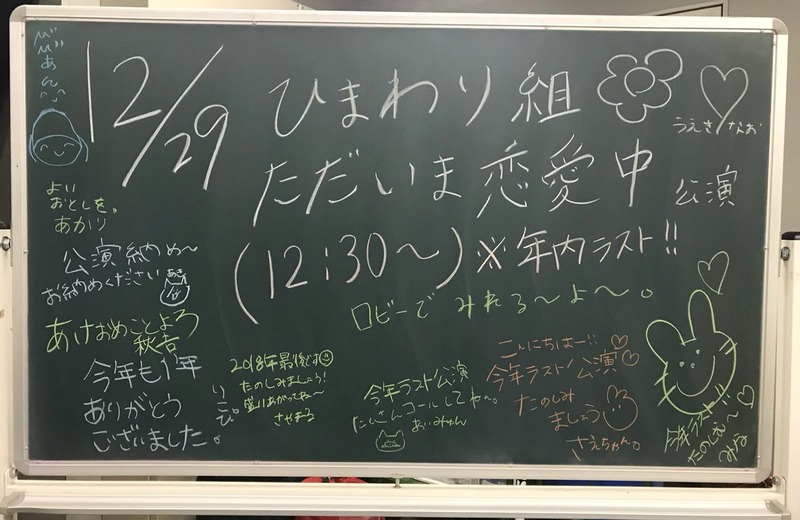 12/29 ひまわり組
ただいま恋愛中 公演
(12:30〜) ※年内ラスト!!
ロビーでみれる〜よ〜。
うえきなお
よい
おとしを。
あかり
公演納め〜
お納めください
あき
あけおめことよろ
秋吉
今年も1年
ありがとう
ございました。
りこぴ。
2018年最後です
たのしみましょう!
盛りあがってね〜
さやまる
今年ラスト公演
たくさんコールしてね〜。
おいみゃん
こんにちはー!!
今年ラスト公演
たのしみ
ましょう
さえちゃん。
今年ラスト!!
たのしむ〜
みな